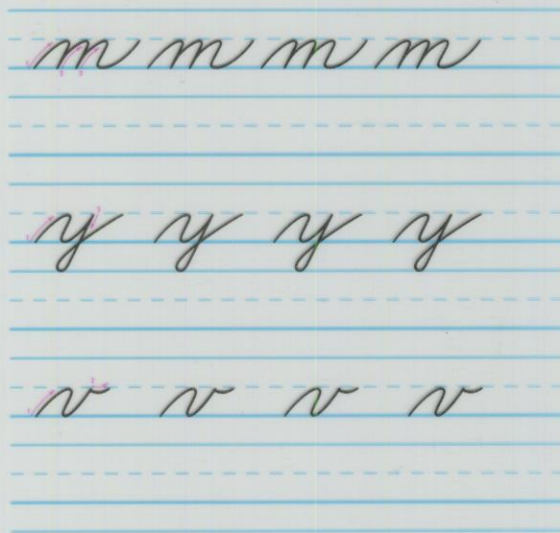 m m m m
y y y y
v v v v